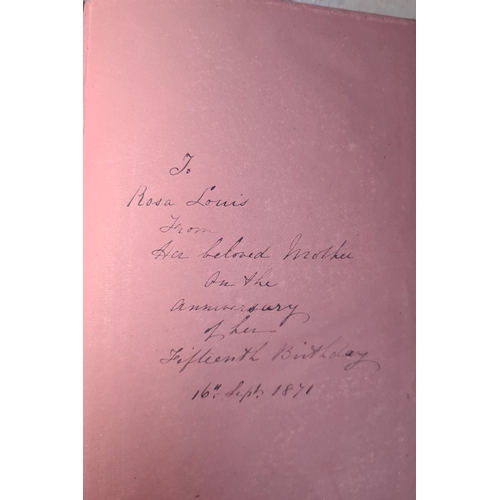 To
Rosa Louis
From
Her beloved Mother
On the
anniversary
of her
Fifteenth Birthday
16th Sept. 1871